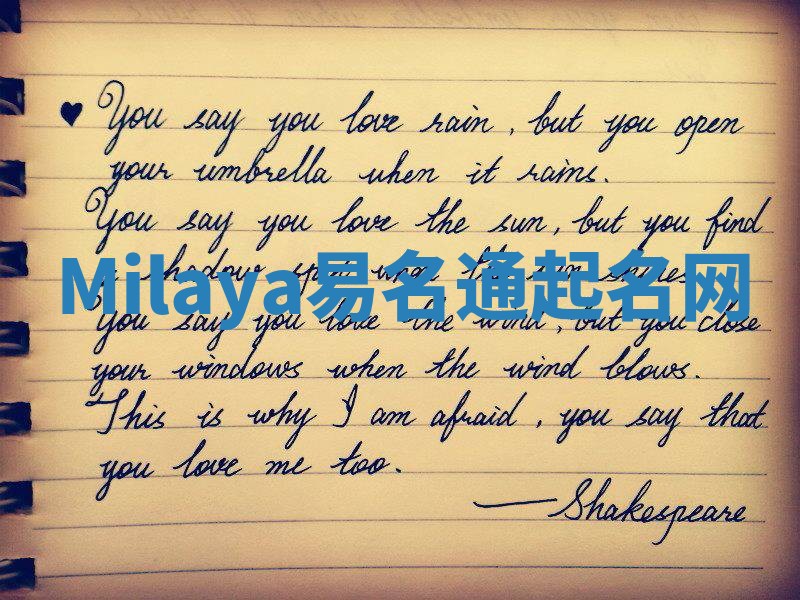 ♥ You say you love rain, but you open
your umbrella when it rains.
You say you love the sun, but you find
a shadow spot when the sun shines.
Milaya易名通起名网
You say you love the wind, but you close
your windows when the wind blows.
This is why I am afraid, you say that
you love me too.
— Shakespeare